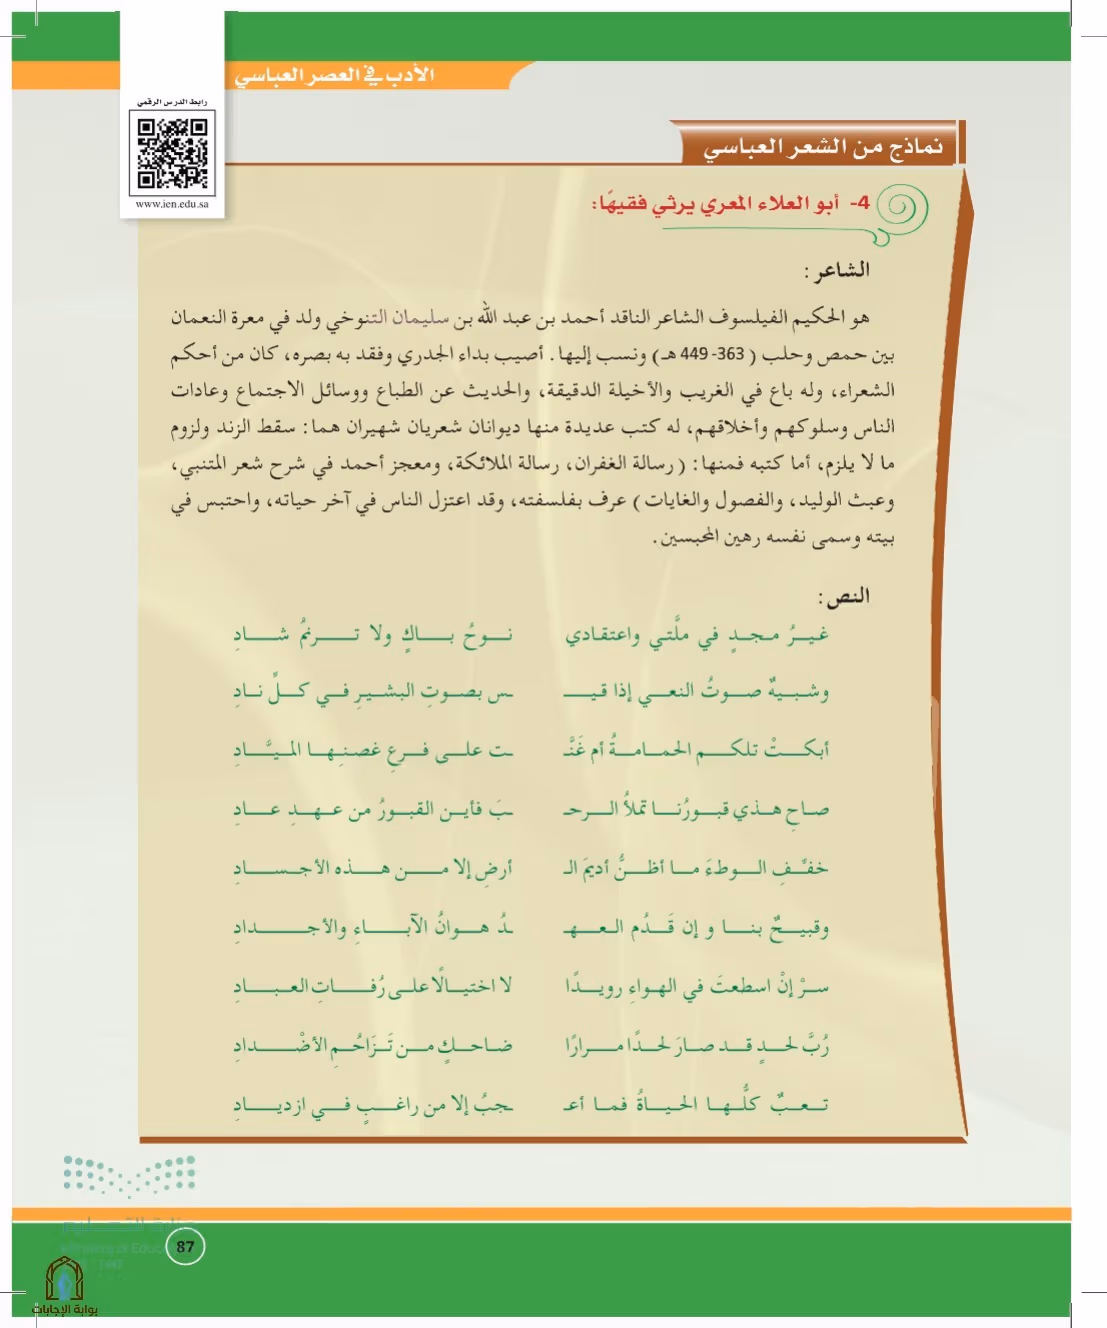 الأدب في العصر العباسي
رابط الدرس الرقمي
www.ien.edu.sa
نماذج من الشعر العباسي
4- أبو العلاء المعري يرثي فقيهًا:
الشاعر :
هو الحكيم الفيلسوف الشاعر الناقد أحمد بن عبد الله بن سليمان التنوخي ولد في معرة النعمان
بين حمص وحلب ( 363- 449 هـ) ونسب إليها. أصيب بداء الجدري وفقد به بصره، كان من أحكم
الشعراء، وله باع في الغريب والأخيلة الدقيقة، والحديث عن الطباع ووسائل الاجتماع وعادات
الناس وسلوكهم وأخلاقهم، له كتب عديدة منها ديوانان شعريان شهيران هما: سقط الزند ولزوم
ما لا يلزم، أما كتبه فمنها: ( رسالة الغفران، رسالة الملائكة، ومعجز أحمد في شرح شعر المتنبي،
وعبث الوليد، والفصول والغايات) عرف بفلسفته، وقد اعتزل الناس في آخر حياته، واحتبس في
بيته وسمى نفسه رهين المحبسين.
النص:
غيرُ مجدٍ في ملَّتي واعتقادي نوحُ باكٍ ولا ترنمُ شادِ
وشبيهٌ صوتُ النعي إذا قيـ ـس بصوتِ البشيرِ في كلِّ نادِ
أبكتْ تلكم الحمامةُ أم غَنَّـ ـت على فرعِ غصنِها الميَّادِ
صاحِ هذي قبورُنا تملأُ الرحـ ـبَ فأين القبورُ من عهدِ عادِ
خفِّفِ الوطءَ ما أظنُّ أديمَ الـ أرضِ إلا من هذه الأجسادِ
وقبيحٌ بنا و إن قَدُم العهـ ـدُ هوانُ الآباءِ والأجدادِ
سرْ إنْ اسطعتَ في الهواءِ رويدًا لا اختيالًا على رُفاتِ العبادِ
رُبَّ لحدٍ قد صارَ لحدًا مرارًا ضاحكٍ من تَزَاحُمِ الأضْدادِ
تعبٌ كلُّها الحياةُ فما أعـ ـجبُ إلا من راغبٍ في ازديادِ
87
بوابة الإجابات